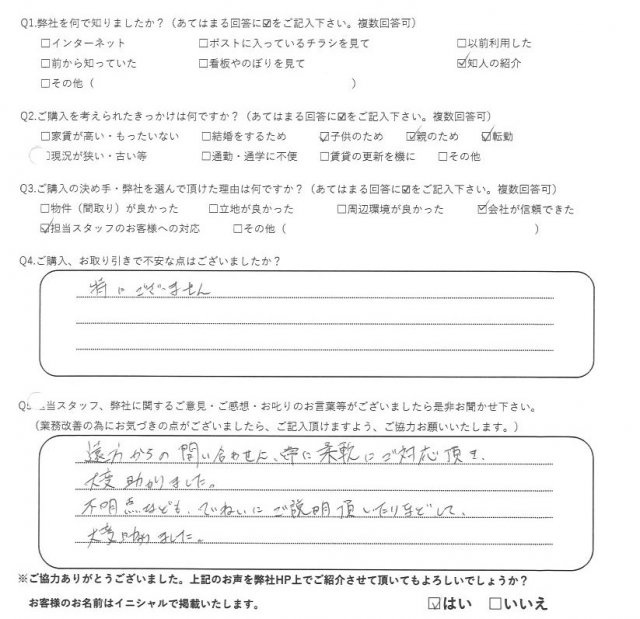 Q1.弊社を何で知りましたか？（あてはまる回答に☑をご記入下さい。複数回答可）
□インターネット　□ポストに入っているチラシを見て　□以前利用した
□前から知っていた　□看板やのぼりを見て　☑知人の紹介
□その他（　）
Q2.ご購入を考えられたきっかけは何ですか？（あてはまる回答に☑をご記入下さい。複数回答可）
□家賃が高い・もったいない　□結婚をするため　☑子供のため　☑親のため　☑転勤
□現況が狭い・古い等　□通勤・通学に不便　□賃貸の更新を機に　□その他
Q3.ご購入の決め手・弊社を選んで頂けた理由は何ですか？（あてはまる回答に☑をご記入下さい。複数回答可）
□物件（間取り）が良かった　□立地が良かった　□周辺環境が良かった　☑会社が信頼できた
☑担当スタッフのお客様への対応　□その他（　）
Q4.ご購入、お取り引きで不安な点はございましたか？
特にございません
Q5 当スタッフ、弊社に関するご意見・ご感想・お叱りのお言葉等がございましたら是非お聞かせ下さい。
（業務改善の為にお気づきの点がございましたら、ご記入頂けますよう、ご協力お願いいたします。）
遠方からの問い合わせに、常に柔軟にご対応頂き、
大変助かりました。
不明点なども、ていねいにご説明頂いたりなどして、
大変助かりました。
※ご協力ありがとうございました。上記のお声を弊社HP上でご紹介させて頂いてもよろしいでしょうか？
お客様のお名前はイニシャルで掲載いたします。　☑はい　□いいえ